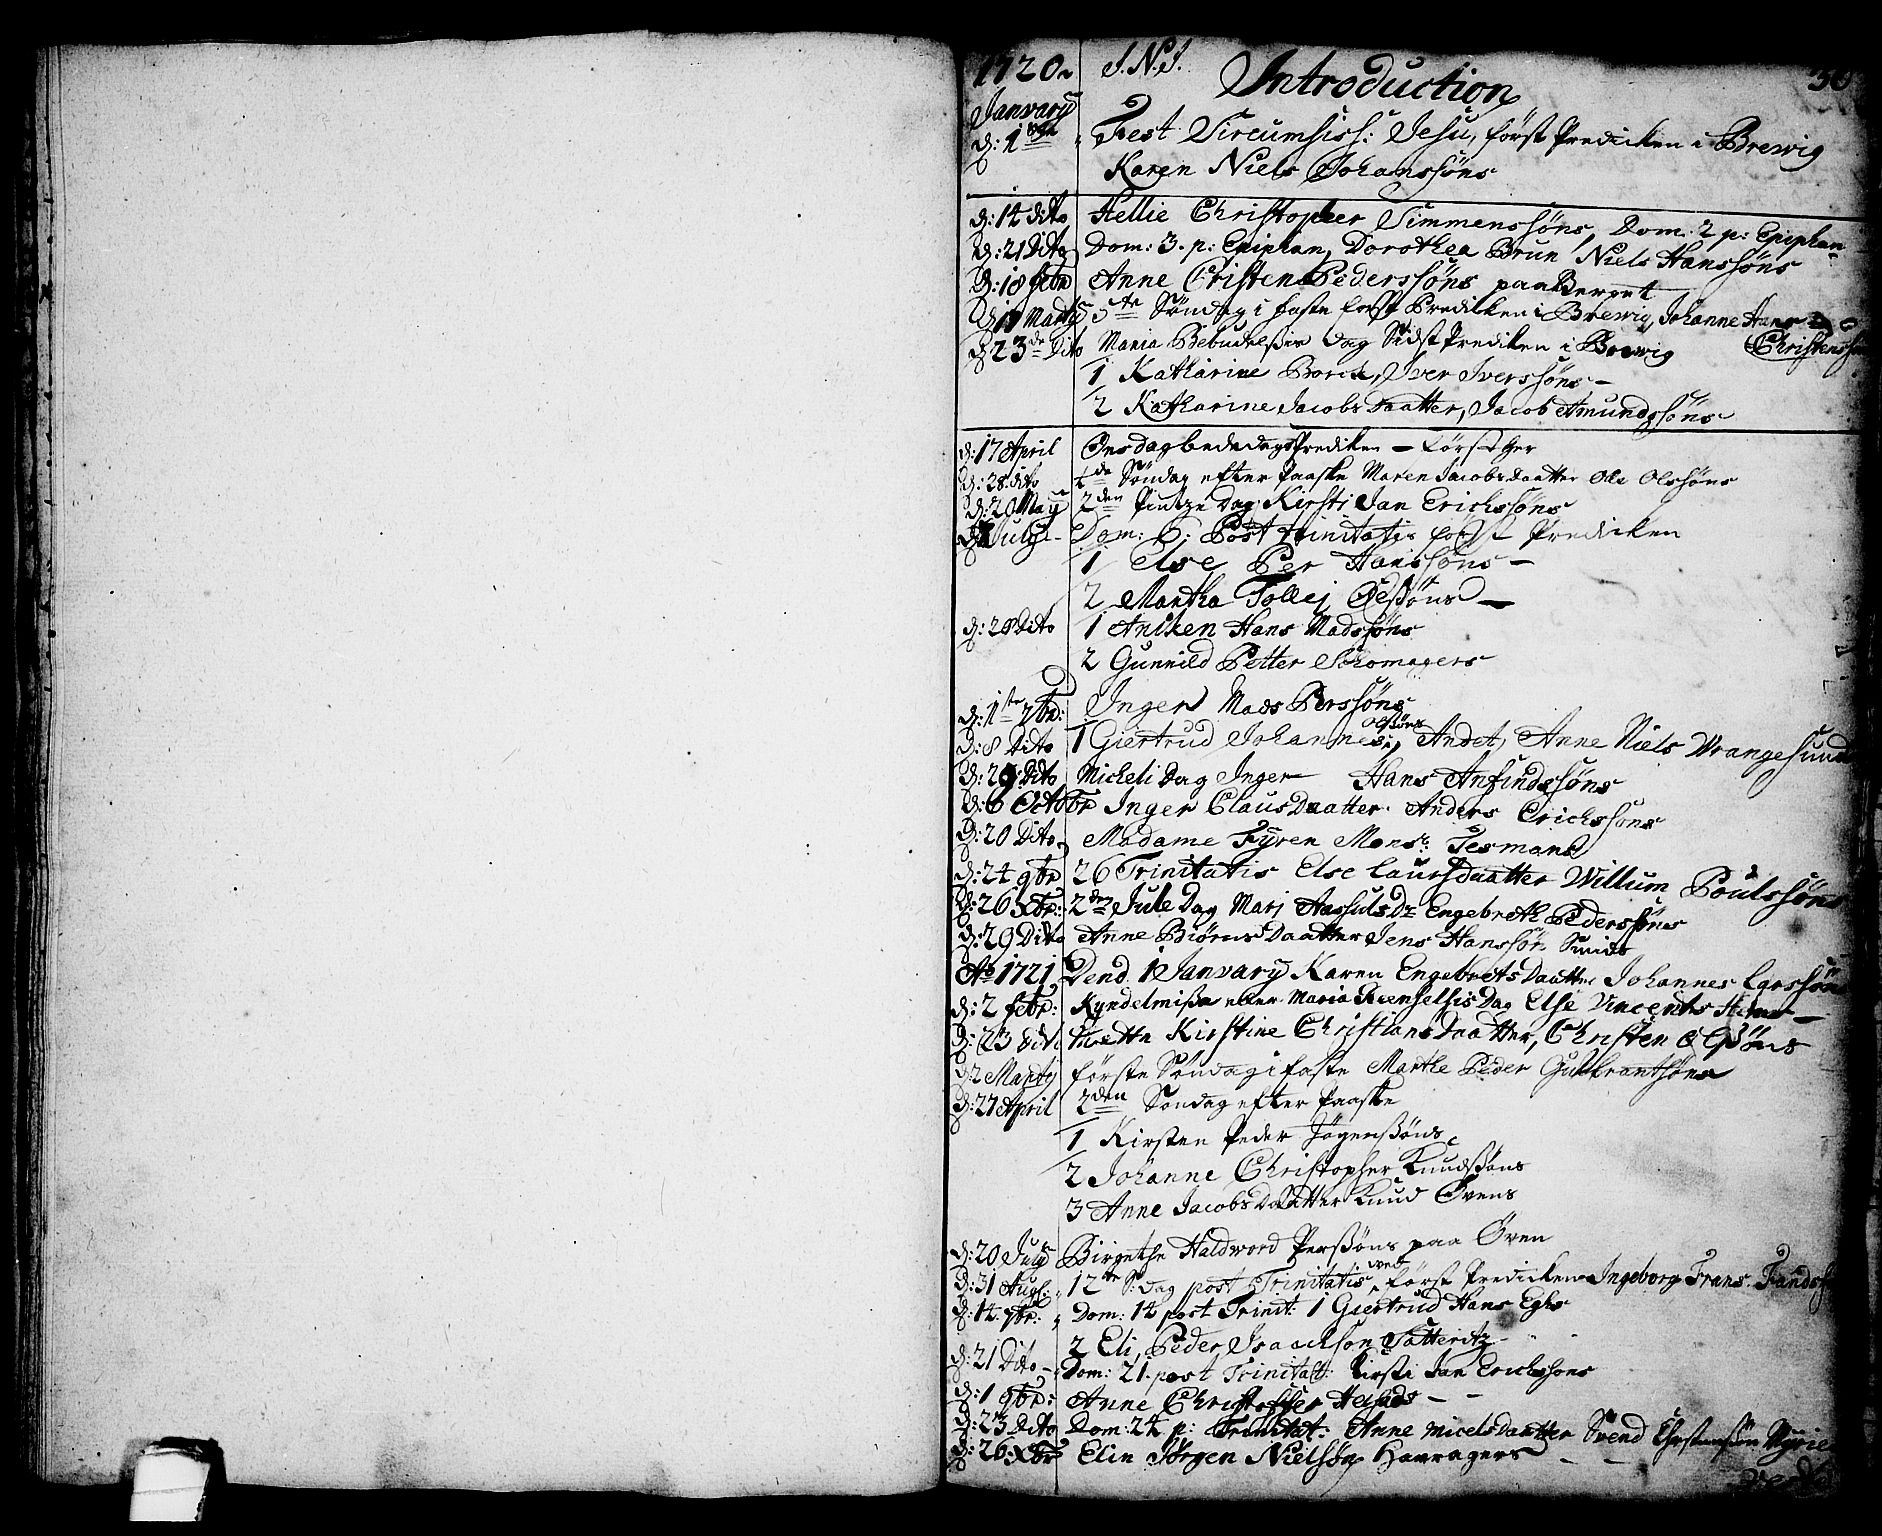 1720 J.N.J. Introduction 30
January
d: 1 Fest Circumsis: Jesu, först Predicken i Brewig
Karen Niels Johanssöns
d: 14 dito Hellie Christopher Simmenssöns, Dom: 2 p: Epiphan
d: 21 Dito Dom: 3. p: Epiphan, Dorothea Brun Niels Hanssöns
d: 18 febr Anne Cristen Pederssöns paa Berget
d: 17 Marty 5te Söndag i faste först Predicken i Brewig, Johanne Hans Christens
d 23de Dito Maria Bebudelsis Dag Sidst Predicken i Brewig
1 Katharine Borck, Iver Iverssöns
2 Katharine Jacobs Daatter, Jacob Amundssöns
d: 17 April Onsdag bededags Prediken – först her
d: 28 dito 4de Söndag efter Paaske Maren Jacobs daatter Ole Olssöns
d: 20 May 2den Pintze Dag Kirsti Jan Erichssöns
July Dom: 6: Post trinitatis först Predicken
1 Else Per Hanssöns –
2 Martha Tollej Olssöns –
d: 28 Dito 1 Aniken Hans Madssöns
2 Gunnild Petter Schomagers
d: 1ste 7br: Inger Mads Perssöns
d: 8 Dito 1 Giertrud Johannes olssöns, Andet, Anne Niels Wrangesund
d: 29 Dito Micheli Dag Inger Hans Anfindssöns
d: 6 Octobr Inger Claus Daatter Anders Erichssöns
d: 20 Dito Madame Fyren Mons: Tesmans
d: 24 9br 26 Trinitatis Else Laursdaatter Willum Poulssöns
d: 26 Xbr: 2den Jule Dag Mari Aassuls Dr Engebreth Pederssöns
d: 29 Dito Anne Biörns Daatter Jens Hanssön Smids
Ao 1721 Dend 1 January Karen Engebrets Daatter Johannes Larssöns
d: 2 febr: Kyndelmisse eller Maria Renselsis Dag Else Vincents
d: 23 Kirstine Christians Daatter, Christen Olssöns
d: 2 Marty förste Söndag i faste Marthe Peder Gulbrantssöns
d: 27 April 2den Söndag efter Paaske
1 Kirsten Peder Jögenssöns
2 Johanne Christopher Knudssöns
3 Anne Jacobs Daatter Knud Övens
d: 20 July Birgethe Haldword Perssöns paa Öven
d: 31 Aug: 12te S:dag post Trinitatis ved först Predicken Ingeborg Frans
d: 14 7br: Dom: 14 post Trinit: 1 Giertrud Hans Eghs
2 Eli Peder Isackson
d: 21 Dito – Dom: 21. post Trinitat: Kirsti Jan Erickssons
d: 1 9br: Anne Christoffer
d: 23 Dito Dom: 24 p: Trinitat: Anne Micels daatter Svend Christenssön Myrie
d: 26 Xbr Elin Jörgen Nielsön Havragers